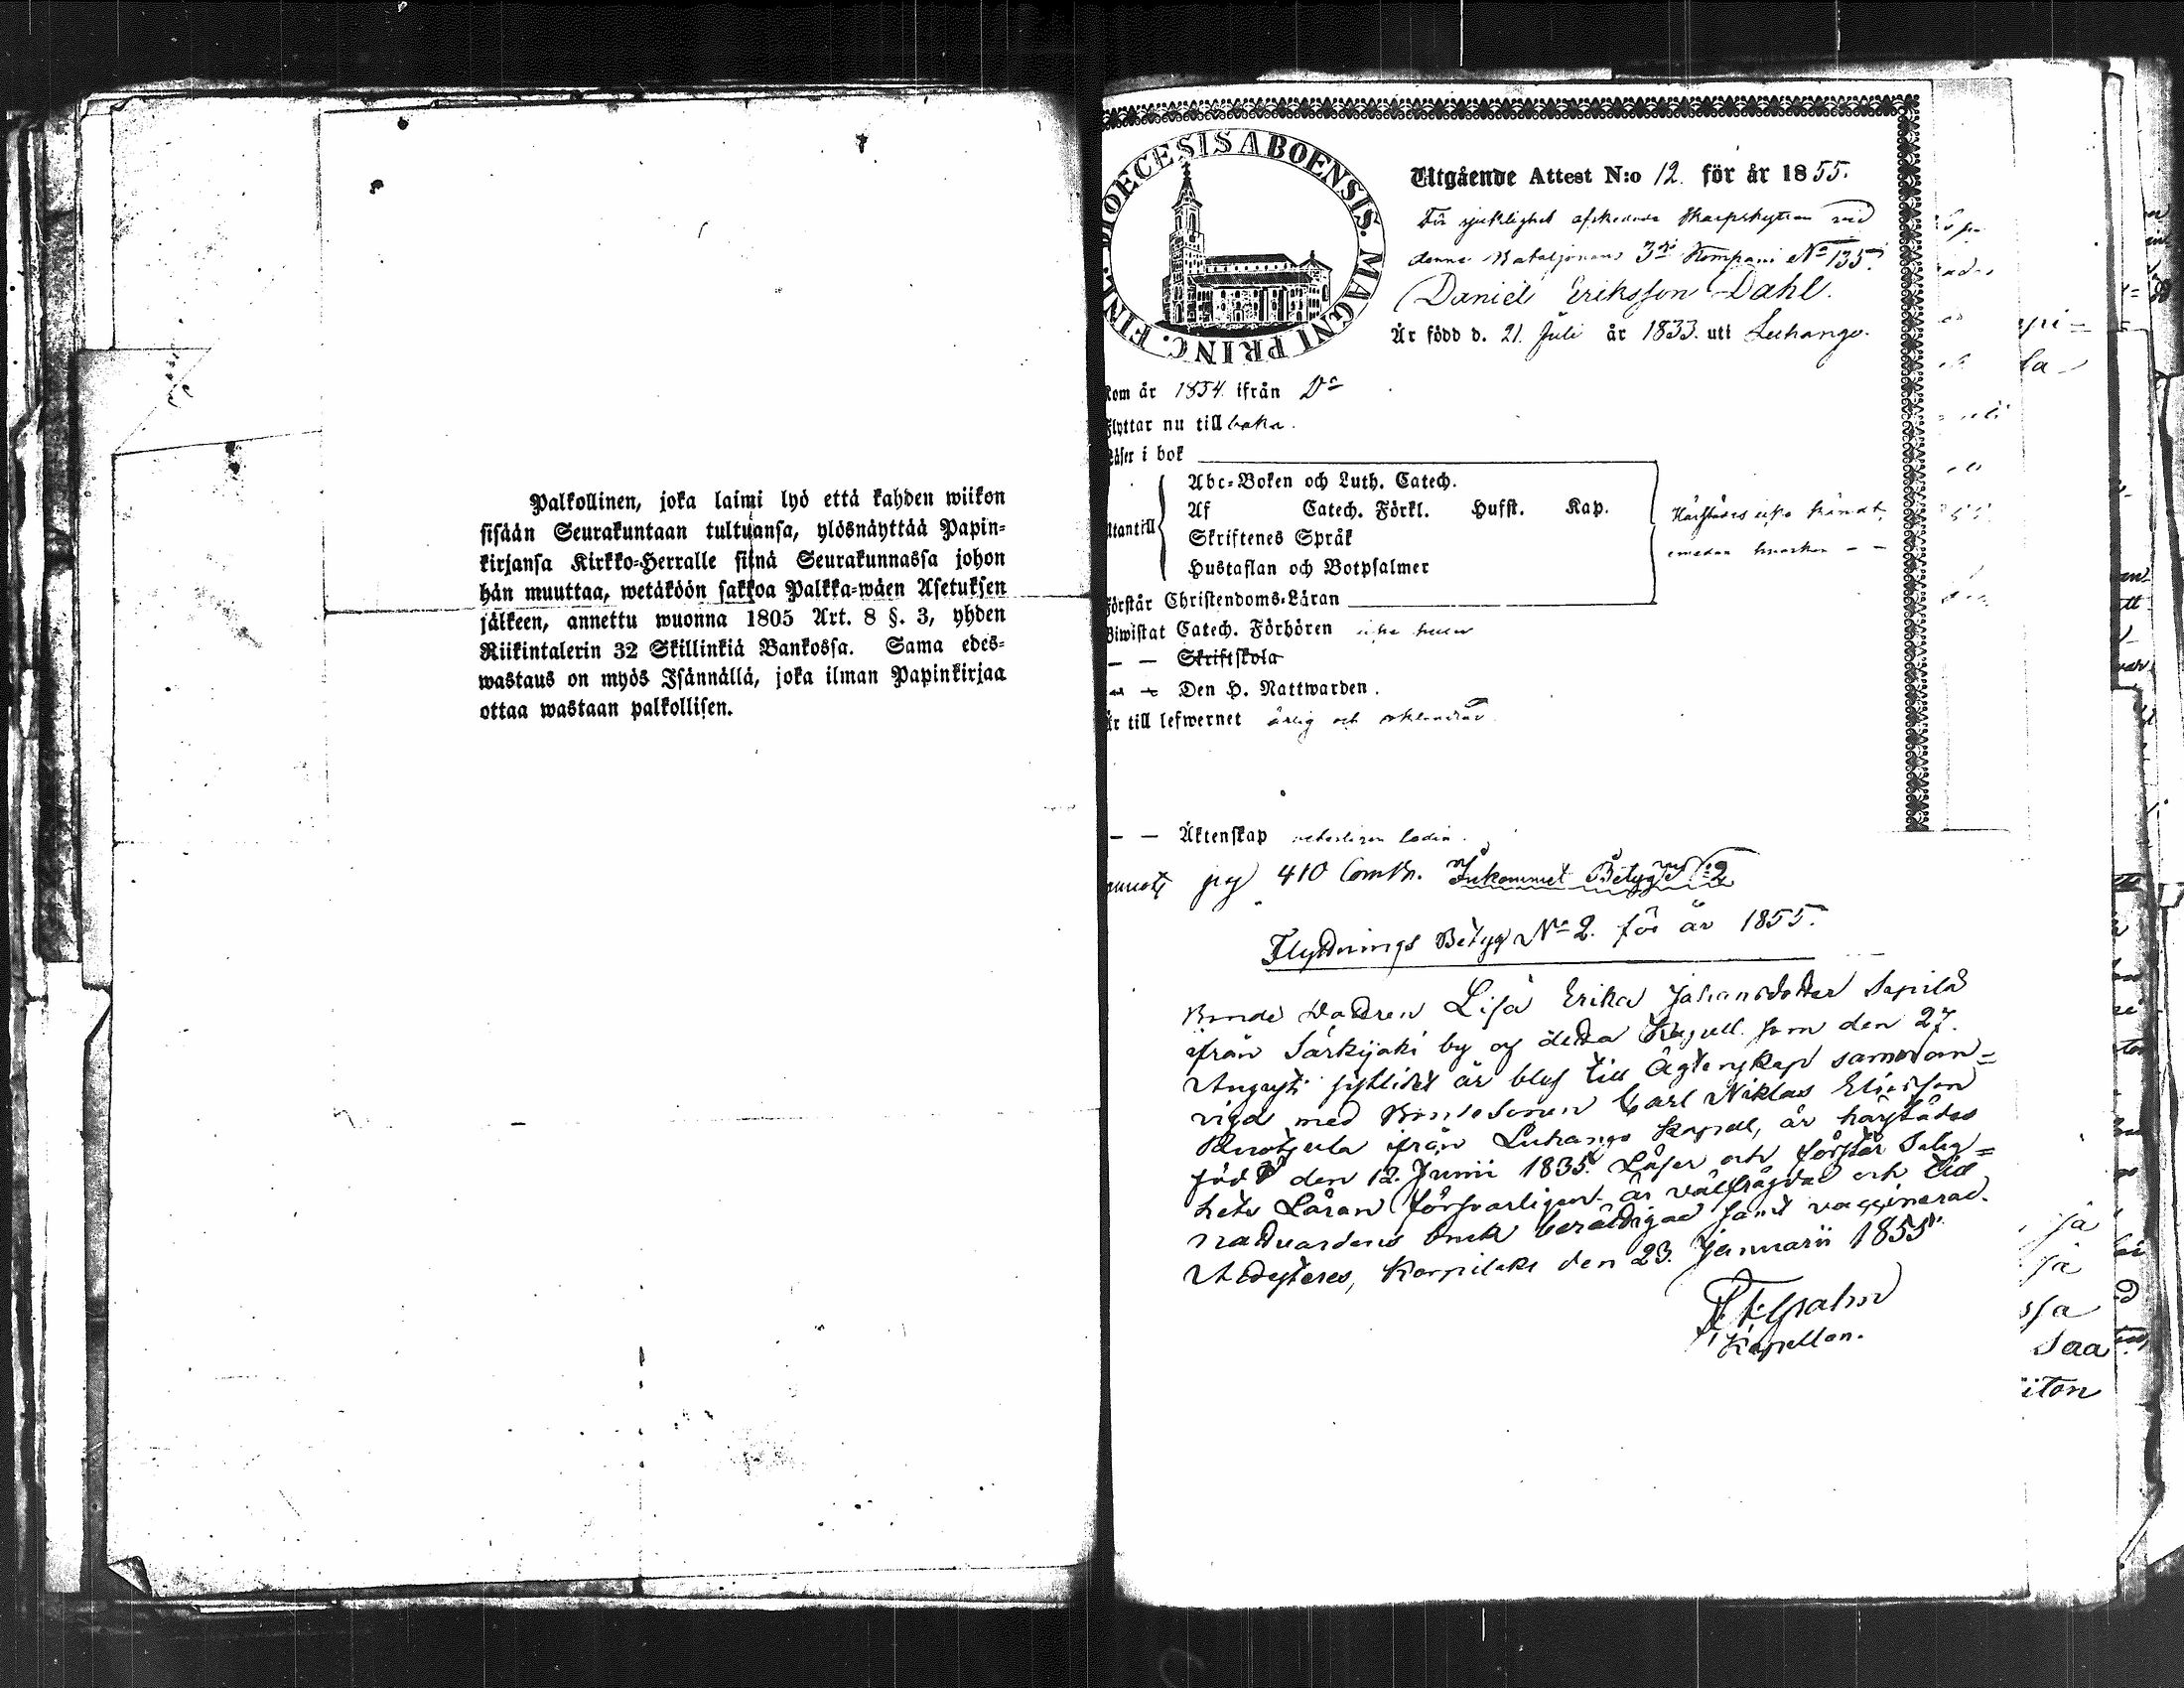 Palkollinen, joka laimi lyö että kahden wiikon
sisään Seurakuntaan tultuansa, ylösnäyttää Papin-
kirjansa Kirkko-Herralle siinä Seurakunnassa johon
hän muuttaa, wetäköön sakkoa Palkka-wäen Asetuksen
jälkeen, annettu wuonna 1805 Art. 8 §. 3, yhden
Riikintalerin 32 Skillinkiä Bankossa. Sama edes-
wastaus on myös Isännällä, joka ilman Papinkirjaa
ottaa wastaan palkollisen.
DIOECESIS ABOENSIS. MAGNI PRINC. FINL.
Utgående Attest N:o 12. för år 1855.
För sjuklighet afskedade Skarpskytten vid
denna Bataljonens 3die Kompani No 135.
Daniel Eriksson Dahl.
Är född d. 21. Juli år 1833. uti Luhango.
Kom år 1854. ifrån Do
Flyttar nu tillbaka.
Läser i bok
Abc-Boken och Luth. Catech.
Af Catech. Förkl. Husst. Kap.
Utantill
Skriftenes Språk
Hustaflan och Botpsalmer
Härstädes icke känt,
emedan
Förstår Christendoms-Läran
Biwistat Catech. Förhören icke
— — Skriftskola
— — Den H. Nattwarden.
Är till lefwernet ärlig och oklandrad
— — Äktenskap veterligen ledig.
pag 410 Comb. Inkommet Betyg No 2
Flyttnings Betyg No 2. för år 1855.
Bonde Dottren Lisa Erika Johansdotter Sapila
ifrån Särkijoki by af detta Kapell som den 27.
Augusti sistlidet år blef till Ägtenskap samman=
vigd med Bondesonen Carl Niklas Eliasson
ifrån Luhango Kapell, är härstädes
född den 12. Junii 1835. Läser och förstår Salig=
hets Läran försvarligen. är välfrägdad och till
nattvardens bruk berättigad samt vaccinerad.
Attesteras, Korpilaks den 23. Januarii 1855
Kapellan.
ja
ja
ssa
Saa
iton